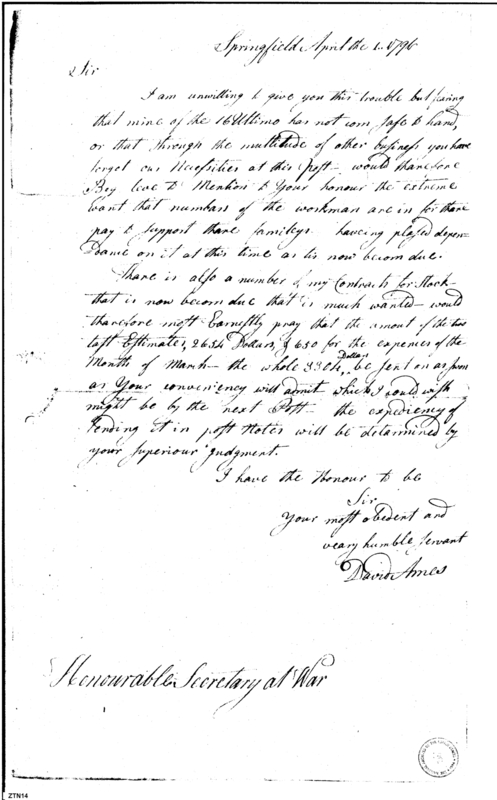 Springfield April the 1. 1796
Sir
I am unwilling to give you this trouble but fearing
that mine of the 16 Ultimo has not com safe to hand,
or that through the multitude of other business you have
forgot our Necessities at this post— would tharefore
Beg leve to Mention to Your honour the extreme
want that numbars of the workman are in for thare
pay to support thare famileys haveing plased depen-
dance on it at this time as tis now becom due.
Thare is also a number of my Contracts for Stock—
that is now becom due that is much wanted— would
tharefore most Earnestly pray that the amout of the two
last Estimates, 2654 Dollars, & 650 for the expences of the
Month of March— the whole 3304 Dollars be sent on as soon
as Your conveniency will admit which I could wish
might be by the next Post— the expediency of
sending it in post Notes will be determined by
your superiour Judgment.
I have the Honour to be
Sir
Your most obedent and
veary humble servant
David Ames
Honourable Secretary at War
ZTN14